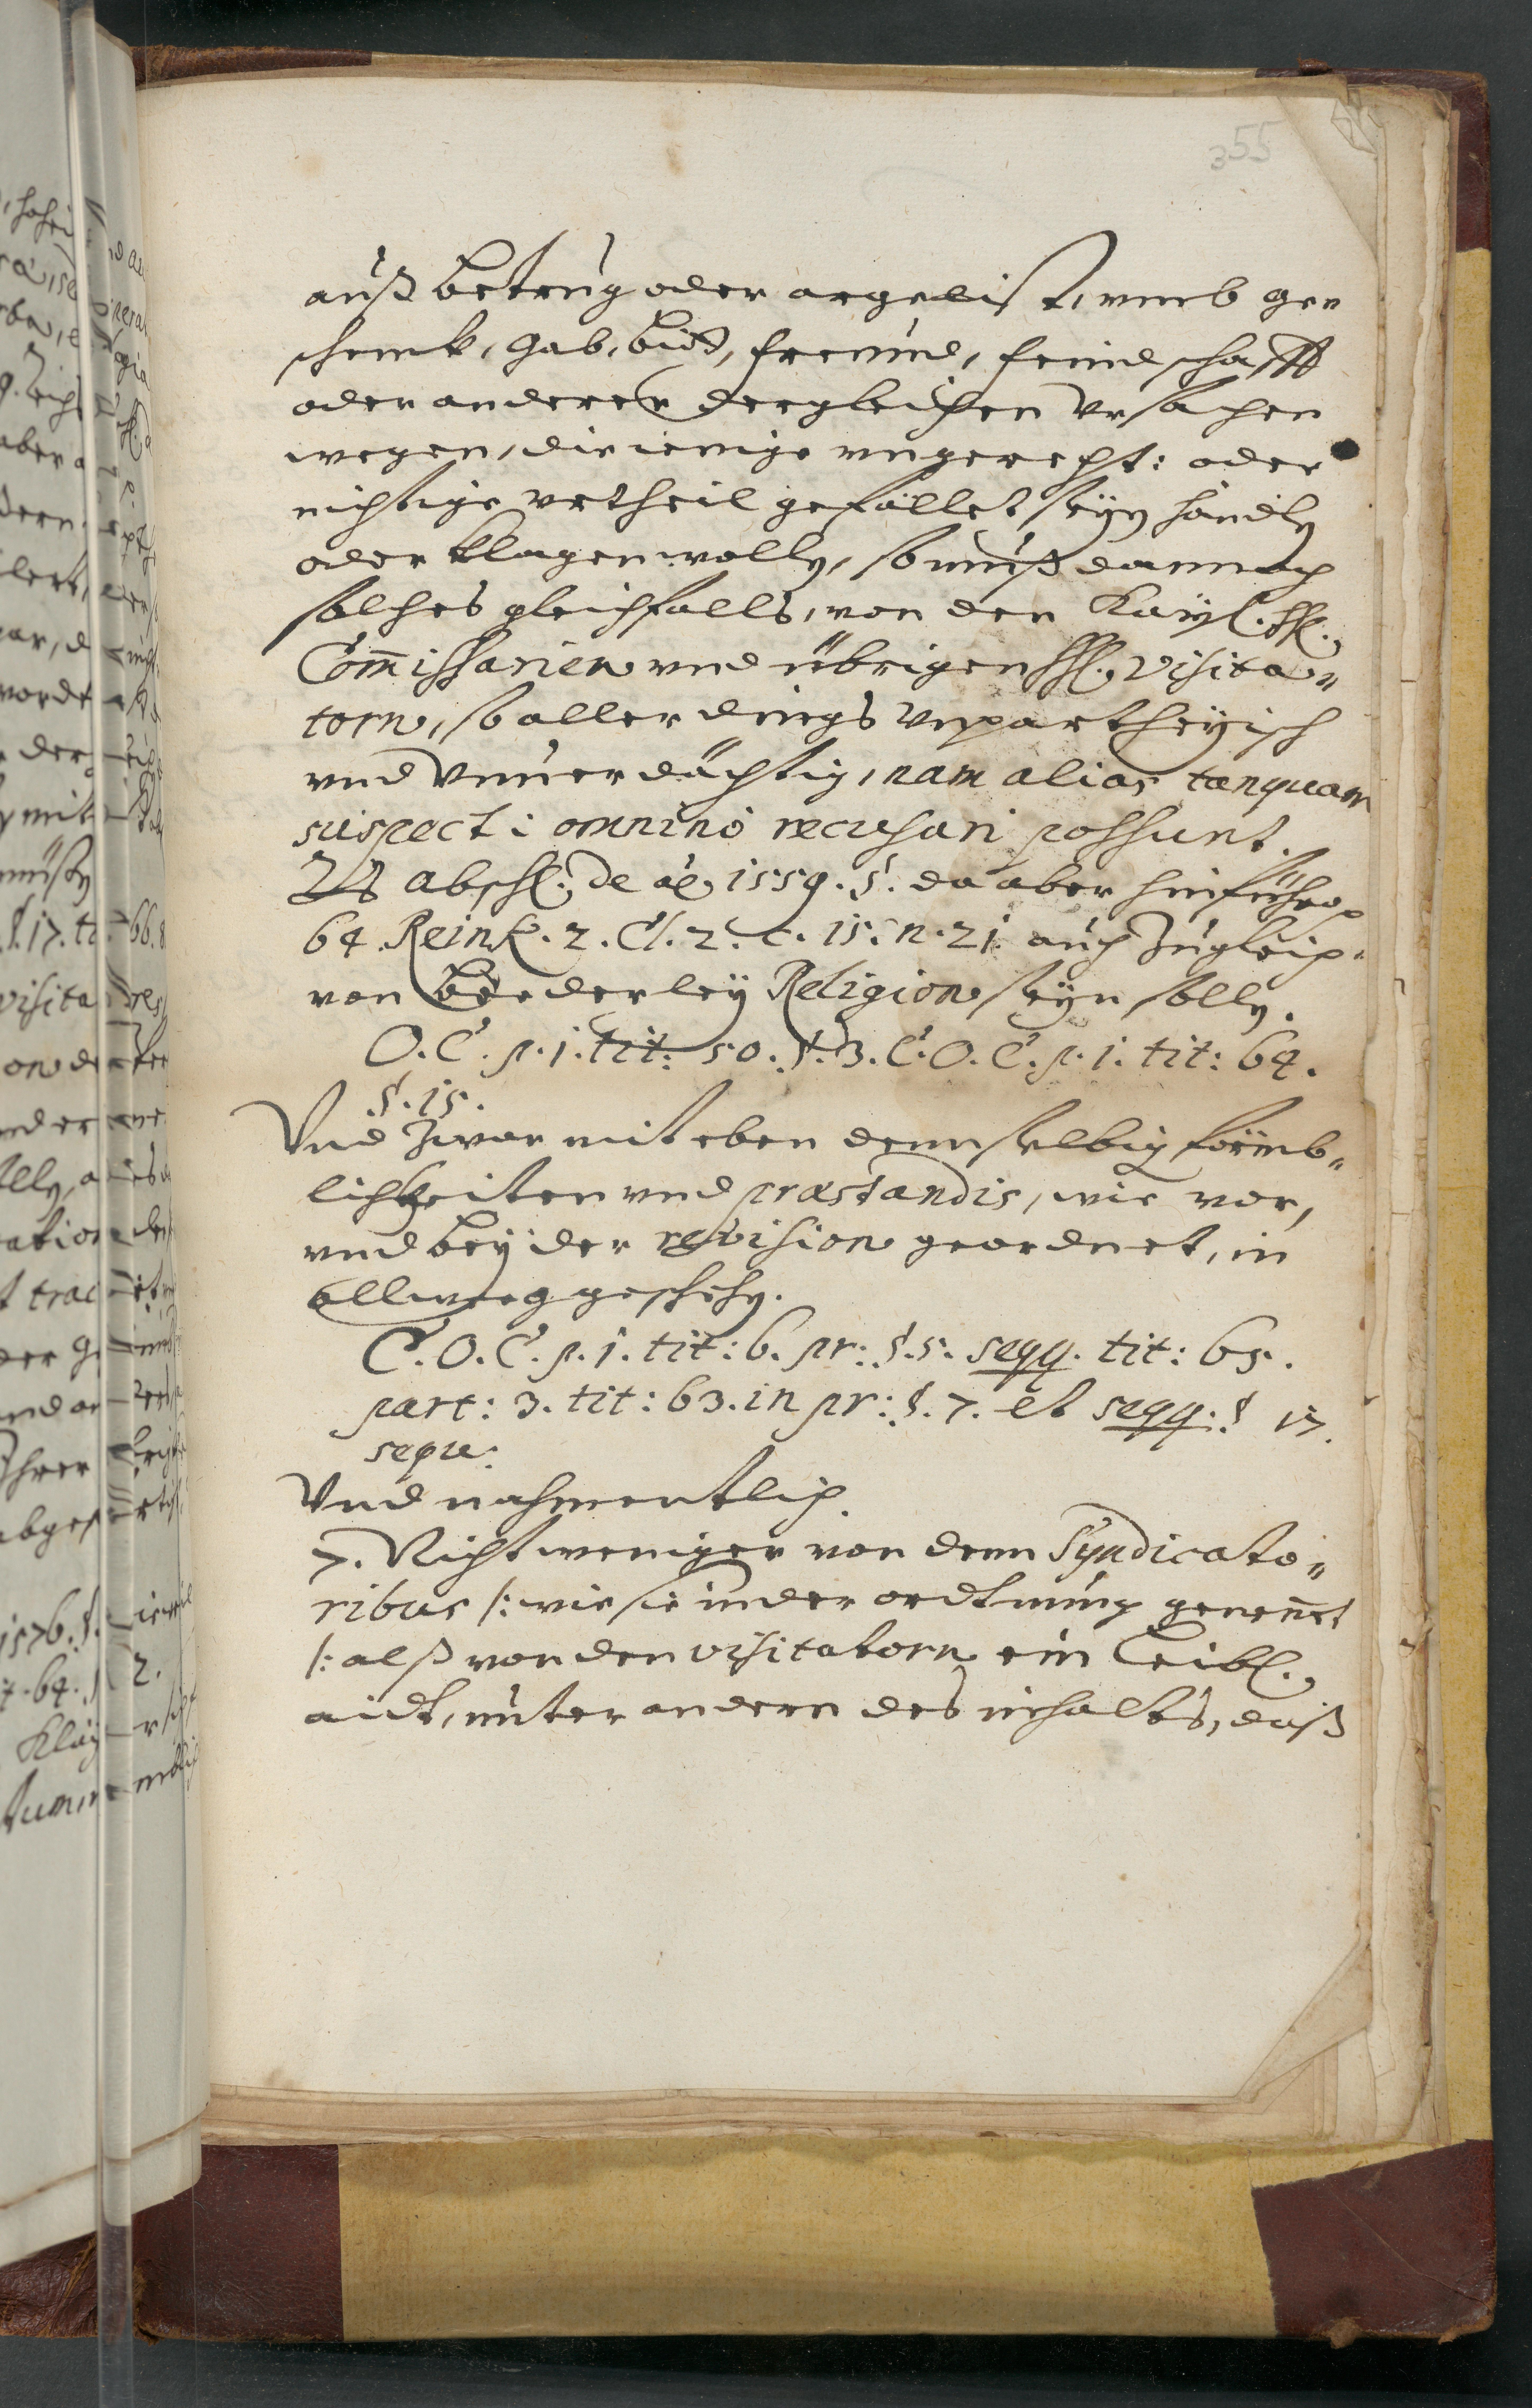 355
auß betrug oder argelist, vmb ge„
schenck, gab, bitt, freund, feindschafft
oder anderer dergleichen Vrsachen
wegen, die ienige vngerecht: oder
nichtige vrtheil gefället seyn
oder klagen wolln, so muß dannoch
solches gleichfalls, von den Kaÿsl. Hl.
Com̃issarien vnd übrigen Hl. Visita„
torn, so aller dings vnpartheÿisch
vnd Vnuerdächtig, nam alias tanquam
suspecti omninò recusari possunt.
abschl. de aõ 1559. §. da aber hinführo
64 Reink. 2. Cl. 2. c. 15. n. 21 auch zugleich
von beederleÿ Religion seÿn solln.
O. C. p. 1. tit: 50. §. 3. C. O. C. p. 1. tit: 64.
§. 15.
Vnd zwar mit eben demselbign förmb„
lichkeiten vnd præstandis, wie vor,
vnd beÿ der revision geordnet, in
allweeg geschehn.
C. O. C. p. 1. tit: 6. pr: §. 5. seqq. tit: 65.
part: 3. tit: 63. in pr: §. 7. et seqq: § 17.
seque:
Vnd nahmentlich.
7. Nicht weniger von denn Syndicato„
ribus /: wie sie in der ordtnung genen̄et
/: alß von den visitatorn ein Leibl.
aidt, unter andern des inhalts, daß